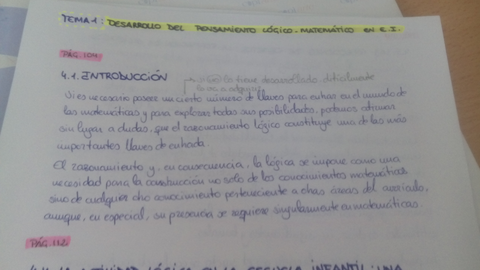 TEMA 1: DESARROLLO DEL PENSAMIENTO LÓGICO-MATEMÁTICO EN E.I.
PÁG. 104
4.1. INTRODUCCIÓN
desarrollado
Si es necesario poseer un cierto número de llaves para entrar en el mundo de
las matemáticas y para explorar todas sus posibilidades, podemos afirmar
sin lugar a dudas, que el razonamiento lógico constituye una de las más
importantes llaves de entrada.
El razonamiento y, en consecuencia, la lógica se impone como una
necesidad para la construcción no solo de los conocimientos matemáticos
sino de cualquier otro conocimiento perteneciente a otras áreas del currículo,
aunque, en especial, su presencia se requiere singularmente en matemáticas.
PÁG. 112
ACTIVIDAD LÓGICA EN LA ESCUELA INFANTIL: UNA